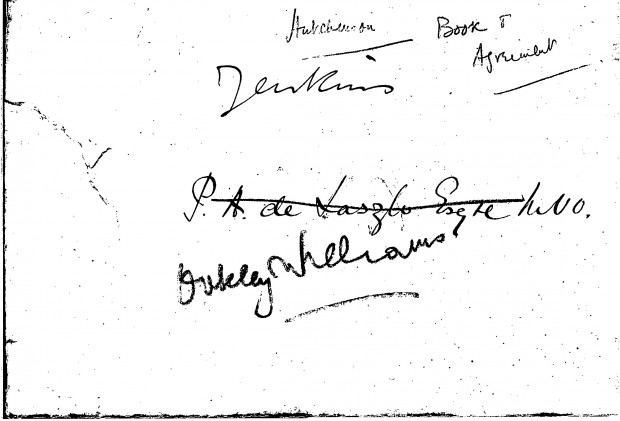 Hutcheson Book &
Agreement
Jenkins
P. A. de Laszlo Esqre MVO.
Oakley Williams